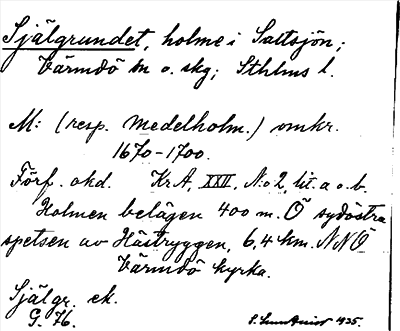 Själgrundet, holme i Saltsjön;
Värmdö sn o. skg; Sthlms l.
M: (resp. Medelholm.) omkr.
1670-1700.
Förf. okd. Kr.A, XXII, N:o 2, lit. a o. b.
Holmen belägen 400 m. Ö sydöstra
spetsen av Hästryggen, 6,4 km. NNÖ
Värmdö kyrka.
Själgr. ek.
G. 76.
1935.